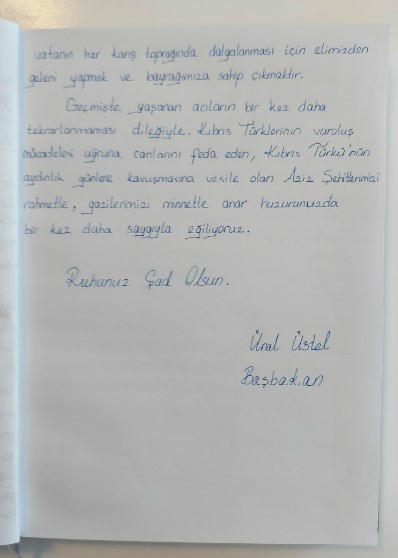 vatanın her karış toprağında dalgalanması için elimizden
geleni yapmak ve bayrağımıza sahip çıkmaktır.
Geçmişte yaşanan acıların bir kez daha
tekrarlanmaması dileğiyle. Kıbrıs Türklerinin varoluş
mücadelesi uğruna canlarını feda eden, Kıbrıs Türkü'nün
aydınlık günlere kavuşmasına vesile olan Aziz Şehitlerimizi
rahmetle, gazilerimizi minnetle anar huzurunuzda
bir kez daha saygıyla eğiliyoruz.
Ruhunuz Şad Olsun.
Ünal Üstel
Başbakan